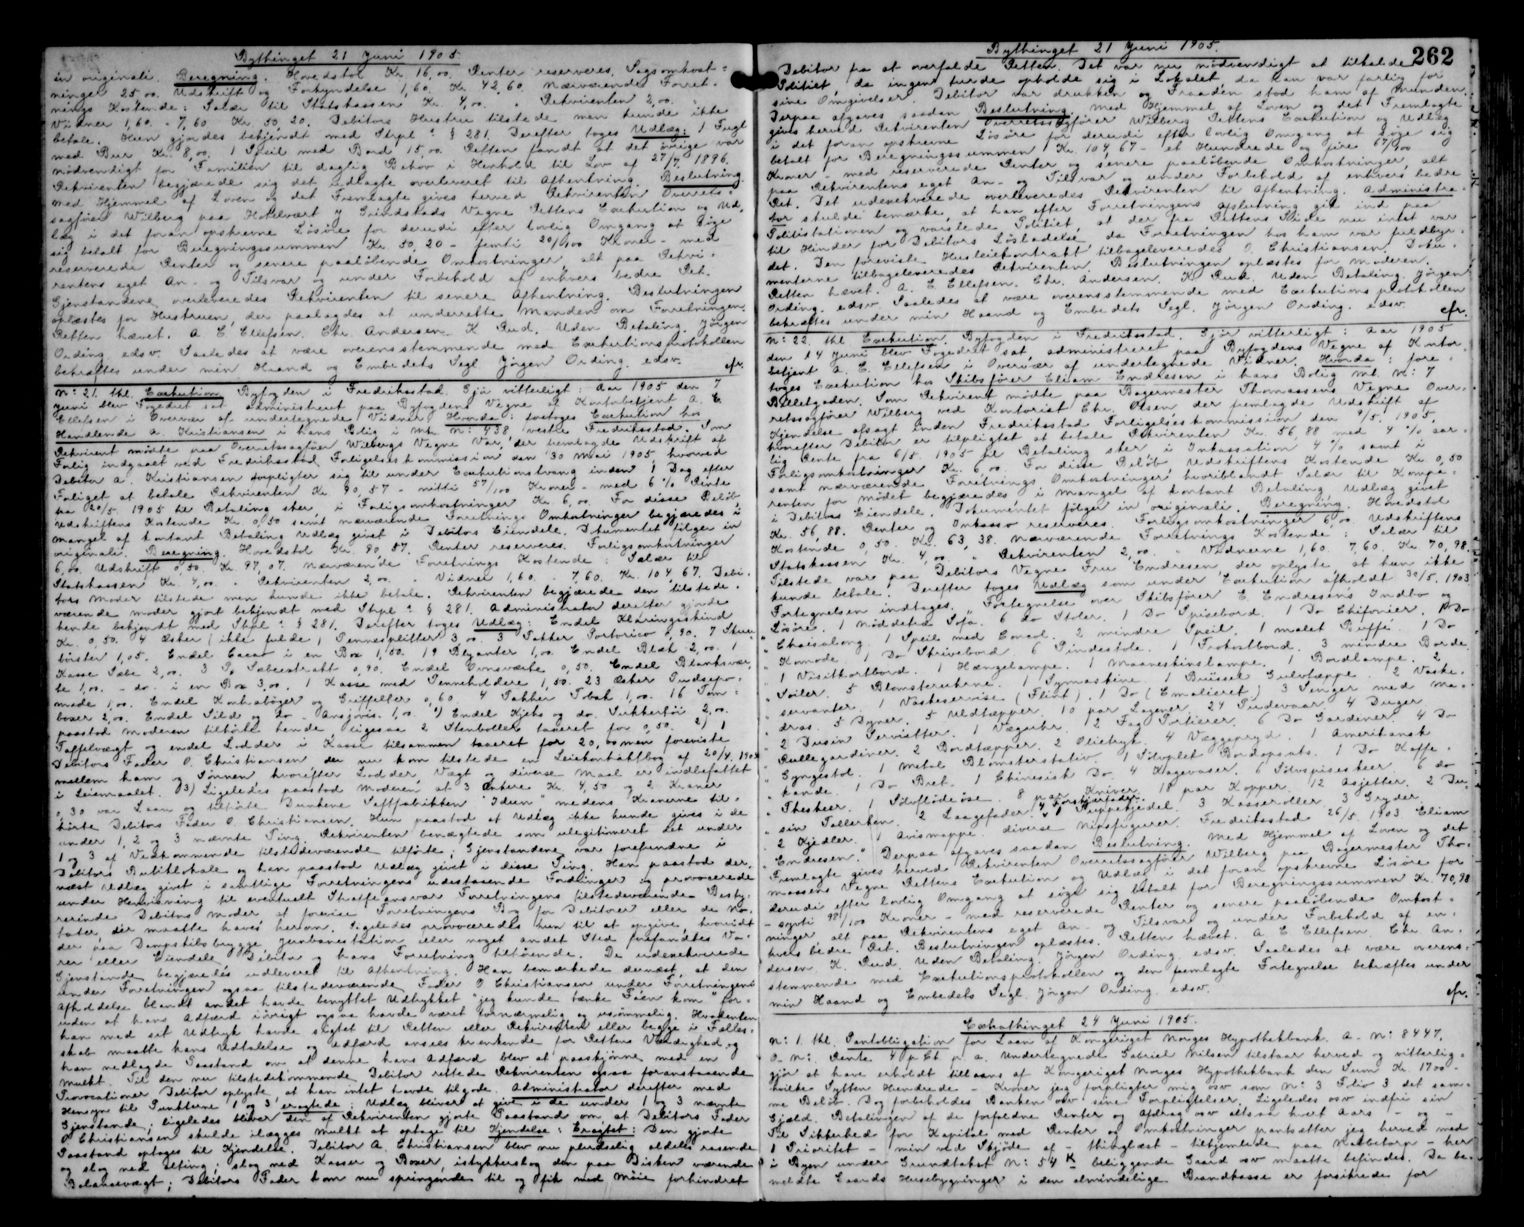 Bythinget 21 Juni 1905
in originali. Beregning. Hovedstol Kr. 16,00. Renter reserveres. Sagsomkost-
ninger 25,00. Udskrift og Forkyndelse 1,60. Kr. 42,60. Nærværende Forret-
nings Kostende: Salær til Statskassen Kr. 4,00. Rekvirenten 2,00.
Vidner 1,60. - 7,60 Kr. 50,20. Debitors Hustru tilstede men kunde ikke
betale. Hun gjordes bekjendt med Strpl § 281. Derefter toges Udlæg: 1 Fugl
med Bur Kr. 8,00. 1 Speil med Bord 15,00. Retten fandt at det övrige var
nödvendigt for Familien til daglig Behov i Henhold til Lov af 27/7 1896.
Rekvirenten begjærede sig det udlagte overleveret til Afhentning. Beslutning.
Med Hjemmel af Loven og det Fremlagte gives herved Rekvirenten Overrets-
sagförer Wilberg paa Hotelvært Grindstads Vegne Rettens Exekution og Ud-
læg i det foran opskrevne Lösöre for derudi efter lovlig Omgang at söge
sig betalt for Beregningssummen Kr. 50,20 - femti 20/100 Kroner - med
reserverede Renter og senere paalöbende Omkostninger, alt paa Rekvi-
rentens eget An- og Tilsvar og under Forbehold af enhvers bedre Ret.
Gjenstandene overleveredes Rekvirenten til senere Afhentning. Beslutningen
oplæstes for Hustruen, der paalagdes at underrette Manden om Forretningen.
Retten hævet. A. E. Ellefsen. Chr. Andersen. K. Rud. Uden Betaling. Jörgen
Ording edsv. Saaledes at være overensstemmende med Exekutionsprotokollen
bekræftes under min Haand og Embedets Segl Jörgen Ording. edsv. cfr.
No: 21. thl. Exekution Byfogden i Fredriksstad Gjör vitterligt: Aar 1905 den 7
Juni blev Fogedret sat, administreret paa Byfogdens Vegne af Kontorbetjent A. E.
Ellefsen i Overvær af undertegnede Vidner. Hvorda: foretoges Exekution hos
Handlende A. Kristiansen i hans Bolig i Mk No: 438 vestre Fredriksstad. Som
Rekvirent mödte paa Overretssagförer Wilbergs Vegne Var, der fremlagde Udskrift af
Forlig indgaaet ved Fredriksstad Forligelseskommission den 30 Mai 1905 hvorved
Debitor A. Kristiansen forpligter sig til under Exekutionstvang inden 1 Dag efter
Forliget at betale Rekvirenten Kr. 90,57 - nitti 57/100 Kroner - med 6 % Rente
fra 20/5 1905 til Betaling sker, i Forligsomkostninger Kr. 6,00. For disse Belöb
Udskriftens Kostende Kr. 0,50 samt nærværende Forretnings Omkostninger begjæredes i
Mangel af kontant Betaling Udlæg givet i Debitors Eiendele. Dokumentet fölger in
originali. Beregning. Hovedstol Kr. 90,57. Renter reserveres. Forligsomkostninger
6,00. Udskrift 0,50. Kr. 97,07. Nærværende Forretnings Kostende: Salær til
Statskassen Kr. 4,00. Rekvirenten 2,00. Vidner 1,60. 7,60. Kr. 104,67. Debi-
tors Moder tilstede men kunde ikke betale. Rekvirenten begjærede den tilstede-
værende moder gjort bekjendt med Strpl § 281. Administrator derefter gjorde
hende bekjendt med Strpl § 281. Derefter toges Udlæg: Endel Klaringsskind
Kr. 0,50. 4 Æsker (ikke fulde) Pennesplitter 3,00. 3 Pakker Portorico 0,90. 7 Skure-
börster 1,05. Endel Cacao i en Box 1,50. 19 Bleganter 1,00. Endel Blæk 2,00. 1
Kasse Sæbe 2,00. 3 Ps Sæbeextrakt 0,90. Endel Ovnsværte 0,50. Endel Blanksvær-
te 1,00. - do. i en Box 3,00. 1 Kasse med Penneholdere 1,50. 23 Æsker Pudsepo-
made 1,00. Endel Kontraböger og Griffeller 0,60. 4 Pakker Tobak 1,00. 16 Tom-
boxer 2,00. Endel Sild og do Ansjovis 1,00. 1) Endel Kjeks og do. Sukkertöi 2,00
paastod moderen tilhörte hende, ligesaa 2 Stenboller taxeret for 0,50. 2) 1
Taffelvægt og endel Lodder i Kasse tilsammen taxeret for 20,00 men foreviste
Debitors Fader O. Christiansen der nu kom tilstede en Leiekontraktbog af 20/4 1904
mellem ham og Sönnen hvorefter Lodder, Vægt og diverse Maal er indbefattet
i Leiemaalet. 3) Ligeledes paastod Moderen at 3 Ankere Kr. 4,50 og 2 Kraner
0,30 var Laan og tilhörte Dunkene Saftfabrikken "Idun" medens Kranerne til-
hörte Debitors Fader O. Christiansen. Hun paastod at Udlæg ikke kunde gives i de
under 1, 2 og 3 nævnte Ting. Rekvirenten benægtede som ulegitimeret det under
1 og 3 af Vedkommende tilstedeværende tilförte; Gjenstandene var forefundne i
Debitors Butiklokale og han paastod Udlæg givet i disse Ting. Han paastod der-
næst Udlæg givet i samtlige Forretningens udestaaende Fordringer og provocerede
under Henvisning til eventuelt Straffeansvar Forretningens tilstedeværende Besty-
rerinde Debitors Moder at forevise Forretningens Bog for Debitorer eller de No-
tater der maatte haves herom. Ligeledes provoceredes hun til at opgive, hvorvidt
der paa Dampskibsbrygge, Jernbanestation eller noget andet Sted forefandtes Va-
rer eller Eiendele Debitor og hans Forretning tilhörende. De udexekverede
Gjenstande begjæredes udleveret til Afhentning. Han bemærkede dernæst, at den
under Forretningen ogsaa tilstedeværende Fader O Christiansen under Forretningens
Afholdelse blandt andet havde benyttet Udtrykket "jeg kunde tænke Fa'en kom" for-
uden at hans Adfærd iövrigt ogsaa havde været fornærmelig og usömmelig. Hvadenten
han med sit Udtryk havde sigtet til Retten eller Rekvirenten eller begge i Fælles-
skab maatte hans Udtalelse og Adfærd ansees krænkende for Rettens Værdighed, og
han nedlagde Paastand om at denne hans Adfærd blev at paaskjönne med en
Mulkt. Til den nu tilstedekommende Debitor rettede Rekvirenten ogsaa foranstaaende
Provocationer. Debitor oplyste, at han intet havde tilgode. Administrator derefter med
Hensyn til Punkterne 1 og 3, eragtede: Udlæg bliver at give i de under 1 og 3 nævnte
Gjenstande; ligeledes bliver den af Rekvirenten gjorte Paastand om at Debitors Fader
O Christiansen skulde ilægges Mulkt at optage til Kjendelse: Eragtet: Den gjorte
Paastand optages til Kjendelse. Debitor A. Christiansen blev nu pludselig aldeles rasende
og slog ned alting; slog ned Kasser og Boxer, istykkerslog den paa Disken værende
Balancevægt; Debitors Fader kom nu springende til og fik med Möie forhindret
Bythinget 21 Juni 1905. 262
Debitor fra at overfalde Retten. Det var nu nödvendigt at tilkalde
Politiet, da ingen turde opholde sig i Lokalet, da han var farlig for
sine Omgivelser. Debitor var drukken og Fraaden stod ham af Munden.
Derpaa afgaves saadan Beslutning. Med Hjemmel af Loven og det Fremlagte
gives herved Rekvirenten Overretssagförer Wilberg Rettens Exekution og Udlæg
i det foran opskrevne Lösöre for derudi efter lovlig Omgang at söge sig
betalt for Beregningssummen Kr. 104,67 - et Hundrede og fire 67/100
Kroner - med reserverede Renter og senere paalöbende Omkostninger, alt
paa Rekvirentens eget An- og Tilsvar og under Forbehold af enhvers bedre
Ret. Det udexekverede overleveredes Rekvirenten til Afhentning. Administra-
tor skulde bemærke, at han efter Forretningens Afslutning gik ind paa
Politistationen og varslede Politiet, at der fra Rettens Side nu intet var
til Hinder for Debitors Löslatelse, da Forretningen hos ham var fuldbyr-
det. Den foreviste Husleiekontrakt tilbageleveredes O. Christiansen. Doku-
menterne tilbageleveredes Rekvirenten. Beslutningen oplæstes for Moderen.
Retten hævet. A. E. Ellefsen. Chr. Andersen. K. Rud. Uden Betaling. Jörgen
Ording. edsv. Saaledes at være overensstemmende med Exekutionsprotokollen
bekræftes under min Haand og Embedets Segl. Jörgen Ording. edsv. cfr.
No: 22. thl. Exekution. Byfogden i Fredriksstad. Gjör vitterligt: Aar 1905
den 14 Juni blev Fogedret sat, administreret paa Byfogdens Vegne af Kontor-
betjent A. E. Ellefsen i Overvær af undertegnede Vidner. Hvorda: fore-
toges Exekution hos Skibsförer Eliam Endresen i hans Bolig mt. No: 7
Balletgaden. Som Rekvirent mödte paa Bagermester Thomassens Vegne Over-
retssagförer Wilberg ved Kontorist Chr. Olsen, der fremlagde Udskrift af
Kjendelse afsagt inden Fredriksstad Forligelseskommission den 9/5 1905,
hvorefter Debitor er tilpligtet at betale Rekvirenten Kr. 56,88 med 4 % aar-
lig Rente fra 6/5 1905 til Betaling sker i Inkassation 4 % samt i
Forligsomkostninger Kr. 6,00. For disse Belöb Udskriftens Kostende Kr. 0,50
samt nærværende Forretnings Omkostninger hvoriblandt Salær til Kompa-
renten for mödet begjæredes i Mangel af kontant Betaling Udlæg givet
i Debitors Eiendele. Dokumentet fölger in originali. Beregning. Hovedstol
Kr. 56,88. Renter og Inkasso reserveres. Forligsomkostninger 6,00. Udskriftens
Kostende 0,50. Kr. 63,38. Nærværende Forretnings Kostende: Salær til
Statskassen Kr. 4,00. Rekvirenten 2,00. Vidnerne 1,60. 7,60. Kr. 70,98.
Tilstede var paa Debitors Vegne Fru Endresen der oplyste, at hun ikke
kunde betale. Derefter toges Udlæg som under Exekution afholdt 30/5 1903
Fortegnelsen indtages. "Fortegnelse over Skibsförer E. Endresens Indbo og
Lösöre. 1 Nöddetræ Sofa. 6 do Stoler. 1 Do Spisebord. 1 Do Chifonier. 1 Do
Chaiselong. 1 Speil med Consol. 2 mindre Speil. 1 malet Buffé. 1 Do
Komode. 1 Do Skrivebord. 6 Pindestole. 1 Frokostbord. 3 mindre Borde.
1 Visitkortbord. 1 Hængelampe. 1 Maaneskinslampe. 1 Bordlampe. 2
Söiler. 5 Blomsterurne. 1 Symaskine. 1 Brüssel Gulvtæppe. 2 Vaske-
servanter. 1 Vaskeservise (Flint). 1 Do (Emalieret) 3 Senger med Ma-
dras. 5 Dyner. 5 Uldtæpper. 10 par Lagener. 24 Pudevaar. 4 Duger.
2 Dusin Servietter. 1 Væguhr. 12 Fag Portierer. 6 Do Gardiner. 4 Do
Rullegardiner. 2 Bordtæpper. 2 Olietryk. 4 Væggepryd. 1 Amerikansk
Gyngestol. 1 Metal Blomsterstativ. 1 Sölvplet Bordopsats. 1 Do Kaffe-
kande. 1 Do Bret. 1 Chinesisk Do. 4 Kagevaser. 6 Sölvspiseskeer. 6 do
Theskeer. 1 Sölvflödeöse. 8 par Kniver. 18 par Kopper. 12 Asjetter. 2 Du-
sin Tallerken. 2 Laagefader. 4 Porslinsfader. 1 Suppekjedel. 3 Kasseroller. 3 Gryder.
2 Kjedler. 1 Avismappe. diverse Nipsfigurer. Fredriksstad 26/5 1903 Eliam
Endresen." Derpaa afgaves saadan Beslutning. Med Hjemmel af Loven og det
Fremlagte gives herved Rekvirenten Overretssagförer Wilberg paa Bagermester Tho-
massens Vegne Rettens Exekution og Udlæg i det foran opskrevne Lösöre for
derudi efter lovlig Omgang at söge sig betalt for Beregningssummen Kr. 70,98
- sytti 98/100 Kroner - med reserverede Renter og senere paalöbende Omkost-
ninger alt paa Rekvirentens eget An- og Tilsvar og under Forbehold af en-
hvers bedre Ret. Beslutningen oplæstes. Retten hævet. A. E Ellefsen. Chr. An-
dersen. K. Rud. Uden Betaling. Jörgen Ording edsv. Saaledes at være overens-
stemmende med Exekutionsprotokollen og den fremlagte Fortegnelse bekræftes under
min Haand og Embedets Segl. Jörgen Ording. edsv. cfr.
Extrathinget 24 Juni 1905.
No: 1. thl. Pantobligation for Laan af Kongeriget Norges Hypothekbank. A. No: 8447.
O. No: Rente 4 p Ct p. a. Undertegnede Gabriel Nilsen tilstaar herved og vitterlig-
gjör at have erholdt tillaans af Kongeriget Norges Hypothekbank den Sum Kr. 1700 -
hvilke Sytten Hundrede - Kroner jeg forpligter mig osv som No: 3 Folio 3 det sam-
me Belöb. Dog forbeholdes Banken osv sine Forpligtelser. Ligeledes osv indfri sin
Gjæld. Betalingen af de forfaldne Renter og Afdrag osv altsaa hvert Aars - og -
Til Sikkerhed for Kapital med Renter og Omkostninger pantsætter jeg herved med
1 Prioritet - min ved Skjöde af thinglæst - tilhjemlede paa Nabbetorp - her
i Byen under Grundtakst No: 54 K beliggende Gaard osv maatte befindes. Da be-
meldte Gaards Husebygninger i den almindelige Brandkasse er forsikrede for